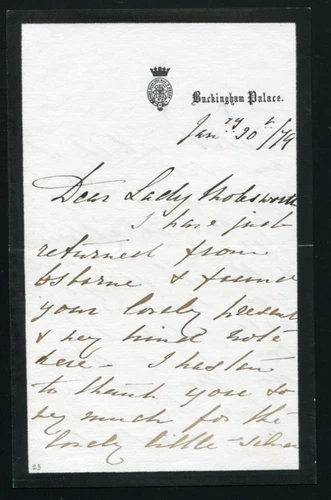 Buckingham Palace.
Jan:ry 30th/79
Dear Lady Molesworth
I have just
returned from
Osborne & found
your lovely present
& very kind note
here – I hasten
to thank you so
very much for the
lovely little silver